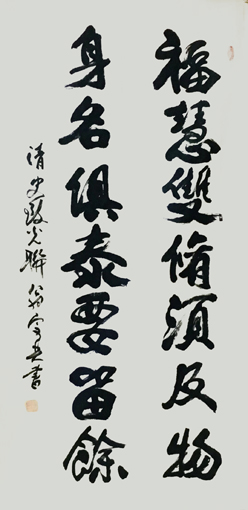 福慧雙脩須及物
身名俱泰要留餘
清史致光聯書